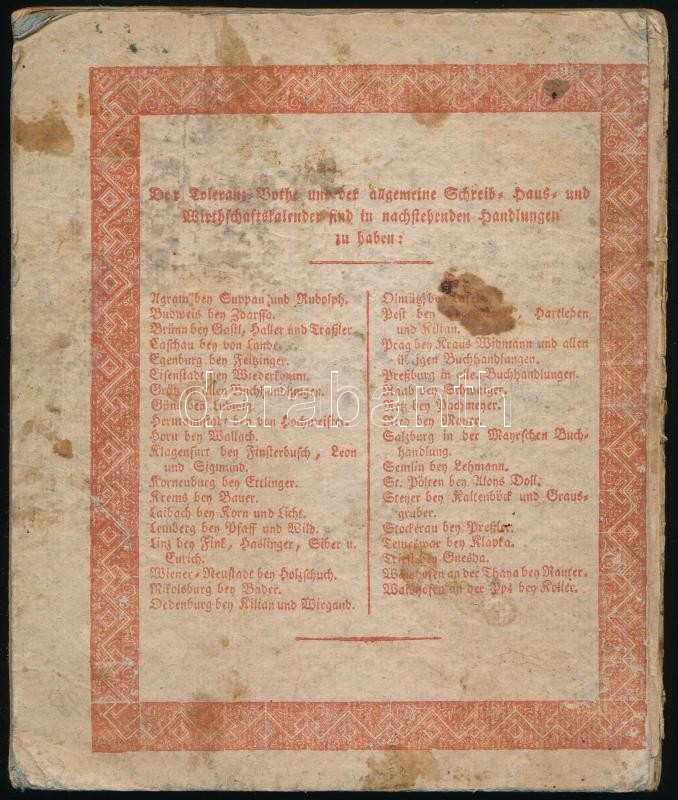 Der Toleranz-Bothe und der allgemeine Schreib- Haus- und
Wirthschaftskalender sind in nachstehenden Handlungen
zu haben:
Agram bey Suppan und Rudolph.
Budweis bey Zdarssa.
Brünn bey Gastl, Haller und Traßler.
Caschau bey von Lande
Egenburg bey Feitzinger.
Eisenstadt bey Wiederkomm.
Grätz in allen Buchhandlungen.
Güns bey
Hermannstadt bey von Hochmeister.
Horn bey Wallach.
Klagenfurt bey Finsterbusch, Leon
und Sigmund.
Korneuburg bey Ettlinger.
Krems bey Bauer.
Laibach bey Korn und Licht.
Lemberg bey Pfaff und Wild.
Linz bey Fink, Haslinger, Siber u.
Eurich.
Wiener-Neustadt bey Holzschuch.
Nikolsburg bey Bader.
Oedenburg bey Kilian und Wiegand.
Olmütz bey
Pest bey Hartleben
und Kilian.
Prag bey Kraus Widmann und allen
übrigen Buchhandlungen.
Preßburg in alle Buchhandlungen.
Raab bey Schwaiger.
Retz bey Pachmeyer.
Ried bey
Salzburg in der Mayrschen Buch-
handlung.
Semlin bey Lehmann.
St. Pölten bey Aloys Doll.
Steyer bey Kaltenböck und Graus-
gruber.
Stockerau bey Preßler.
Temeswar bey Klapka.
Triest bey Gnesda.
Waidhofen an der Thaya bey Rauter.
Waidhofen an der Yps bey Koller.
darabanth